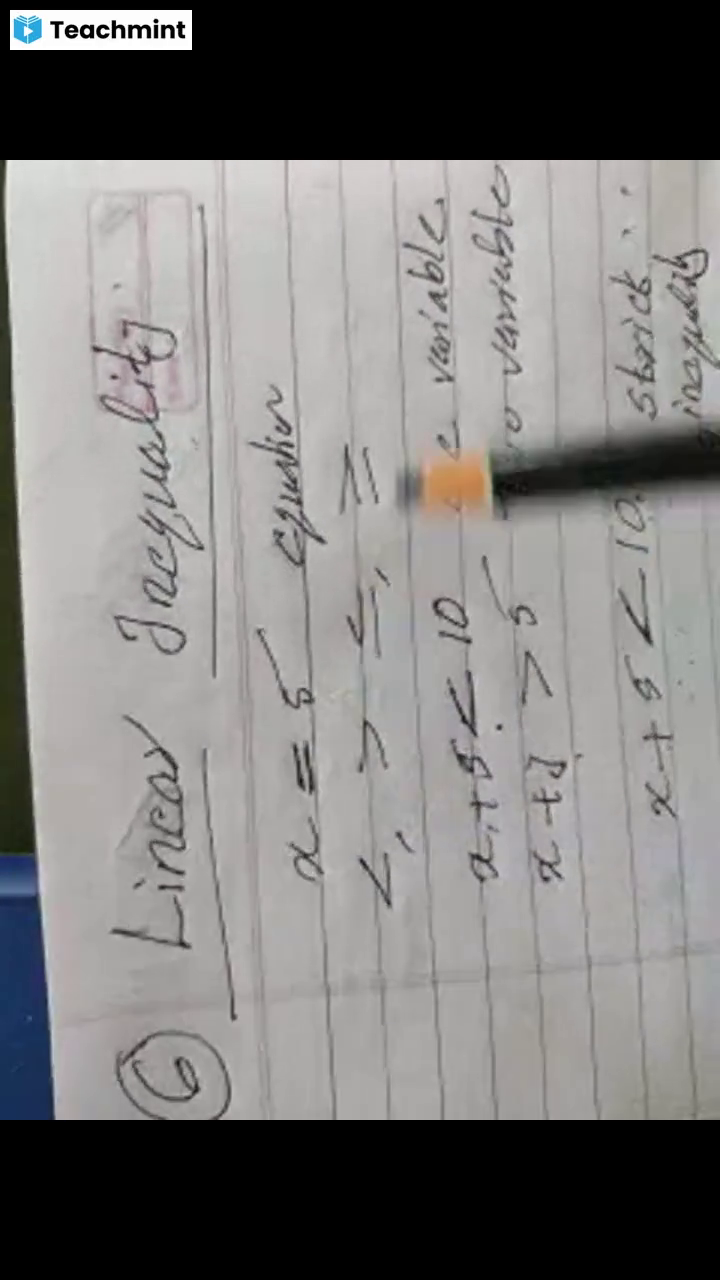 Teachmint
6 Linear Inequality
x = 5 equation
<, > ≤, ≥
x + 5 < 10 variable.
x + y > 5 variable
x + 5 < 10. strick
inequality